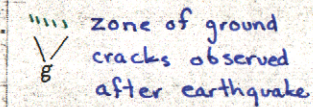 zone of ground
cracks observed
g
after earthquake